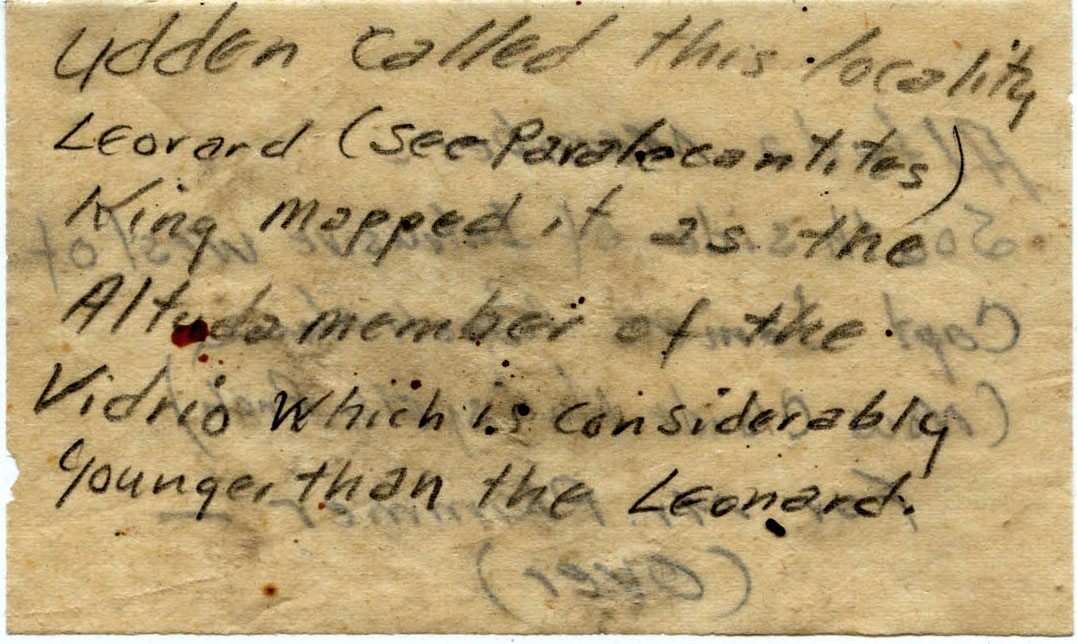 Udden called this locality
Leovard (see Paralecantites)
King mapped it as the
Altuda member of the
Vidrio which is considerably
younger than the Leonard.
(over)